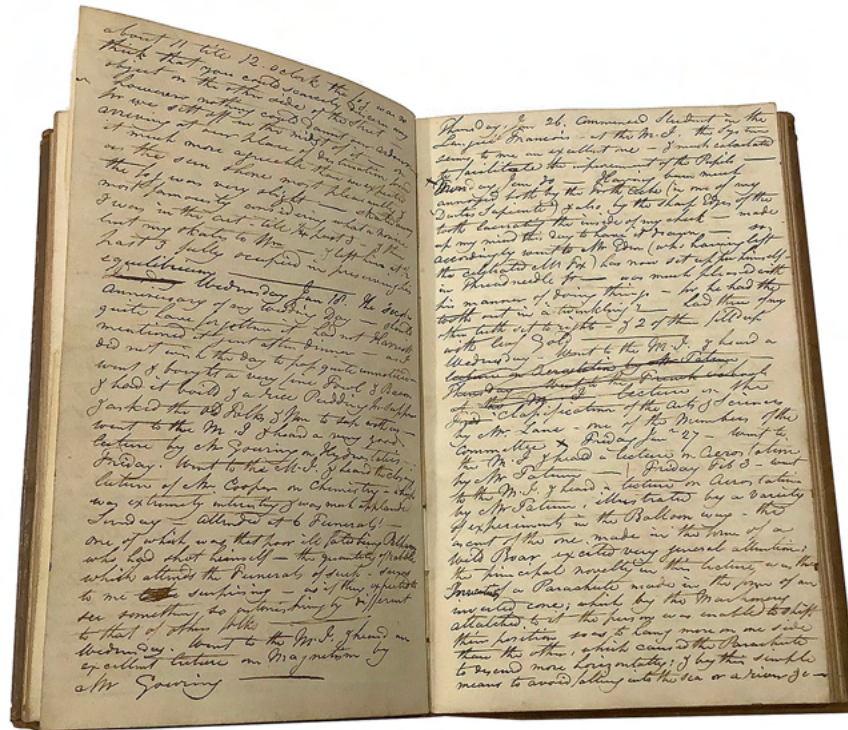 about 11 till 12 oclock the fog was so
thick that you could scarcely discern any
object on the other side of the street —
however nothing could daunt our ardour
for we set off in the midst of it — on
arriving at our place of destination, found
it much more agreeable than we expected
as the sun shone most pleasantly &
the fog was very slight — skated away
most famously considering what a novice
I was in the art till ½ past 2. I then
lent my skates to Wm — & left him at ½
past 3 fully occupied in preserving his
equilibrium
Wednesday Jan 18. The second
anniversary of my Wedding Day — should
quite have forgotten it had not Harriett
mentioned it just after dinner — as I
did not wish the day to pass quite unnoticed
went & bought a very fine Fowl & Bacon
& had it boil'd & a rice Pudding for supper
& asked the old Folks & Wm to sup with us —
went to the M. I & heard a very good
lecture by Mr Gowring on Hydrostatics.
Friday. Went to the M. I. & heard the closing
lecture of Mr Cooper on Chemistry — which
was extremely interesting & was most applauded
Sunday — attended at 6 Funerals! —
one of which was that poor ill fated
who had shot himself — the quantity of rabble
which attends the Funerals of such — seems
to me surprising — as if they expected to
see something so astonishingly different
to that of other folks
Wednesday. Went to the M. I. & heard an
excellent lecture on Magnetism by
Mr Gowring
Thursday, Jan 26, commenced Student in the
Langue Francois — at the M. I. the System
seems to me an excellent one — & much calculated
to facilitate the improvement of the Pupils —
Monday, Jan 30 — Having been much
annoyed both by the Tooth Ache (in one of my
Dentes Sapientes) & also by the sharp edges of the
tooth lacerating the inside of my cheek — made
up my mind this day to have it drawn — so
accordingly went to Mr (who having left
the celebrated Mr Fox) has now set up for himself —
in Threadneedle St — was much pleased with
his manner of doing things — for he had the
tooth out in a twinkling! — had three of my
other teeth set to rights — & 2 of them filled up
with leaf Gold
Wednesday — Went to the M. I. & heard a
lecture on Aerostation by Mr Tatum —
Thursday — Went to the French
at the M. I — lecture on the
Classification of the Arts & Sciences
by Mr Lane — one of the Members of the
Committee × Friday Jan 27 — Went to
the M. I & heard a lecture on Aerostation
by Mr Tatum — Friday Feb 3 — went
to the M. I. & heard a lecture on Aerostation
by Mr Tatum, illustrated by a variety
of experiments in the Balloon way — the
ascent of the one made in the form of a
Wild Boar excited very general attention;
the principal novelty in the lecture, was the
Invention of a Parachute made in the form of an
inverted cone; which by the Machinery
attached to it the person was enabled to shift
their position so as to hang more on one side
than the other, which caused the Parachute
to descend more horizontally; & by this simple
means to avoid falling into the sea or a river &c —